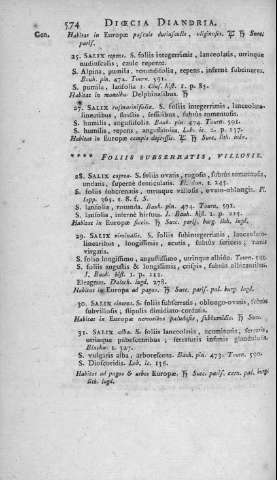 574 DIŒCIA DIANDRIA.
Gen. Habitat in Europæ pascuis duriusculis, uliginosis. ♄ Suec.
paris.
25. SALIX repens. S. foliis integerrimis, lanceolatis, utrinque
nudiusculis, caule repente.
S. Alpina, pumila, rotundifolia, repens, inferne subcinerea.
Bauh. pin. 474. Tourn. 591.
S. pumila, latifolia 1. Clus. hist. 1. p. 85.
Habitat in montibus Delphinatibus. ♄
27. SALIX rosmarinifolia. S. foliis integerrimis, lanceolato-
linearibus, strictis, sessilibus, subtus tomentosis.
S. humilis, angustifolia. Bauh. pin. 474. Tourn. 591.
S. humilis, repens, angustifolia. Lob. ic. 2. p. 137.
Habitat in Europæ campis depressis. ♄ Suec.
**** FOLIIS SUBSERRATIS, VILLOSIS.
28. SALIX caprea. S. foliis ovatis, rugosis, subtus tomentosis,
undatis, superne denticulatis. Fl. dan. t. 245.
S. foliis subcrenatis, utrinque villosis, ovato-oblongis. Fl.
lapp. 365. t. 8. f. S.
S. latifolia, rotunda. Bauh. pin. 474. Tourn. 591.
S. latifolia, inferne hirsuta. J. Bauh. hist. 1. p. 215.
Habitat in Europæ siccis. ♄ Suec. paris. burg. lith. lugd.
29. SALIX viminalis. S. foliis subintegerrimis, lanceolato-
linearibus, longissimis, acutis, subtus sericeis; ramis
virgatis.
S. folio longissimo, angustissimo, utrinque albido. Tourn. 591.
S. foliis angustis & longissimis, crispis, subtus albicantibus.
J. Bauh. hist. 1. p. 212.
Eleagnos. Dalech. lugd. 278.
Habitat in Europa ad pagos. ♄ Suec. paris. pal. burg. lugd.
30. SALIX cinerea. S. foliis subserratis, oblongo-ovatis, subtus
subvillosis, stipulis dimidiato-cordatis.
Habitat in Europæ nemoribus paludosis, subhumidis. ♄ Suec.
31. SALIX alba. S. foliis lanceolatis, acuminatis, serratis,
utrinque pubescentibus; serraturis infimis glandulosis.
t. 327.
S. vulgaris alba, arborescens. Bauh. pin. 473. Tourn. 590.
S. Dioscoridis. Lob. ic. 136.
Habitat ad pagos & urbes Europæ. ♄ Suec. paris. carn. pal. burg.
lith. lugd.